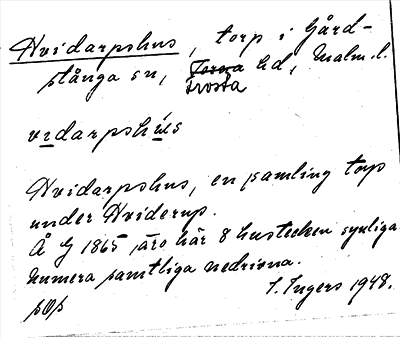 Hvidarpshus, torp i Gård-
stånga sn, Torna hd, Malm. l.
Frosta
vidarpshús
Hvidarpshus, en samling torp
under Hviderup.
Å G 1865 äro här 8 hustecken synliga
numera samtliga nedrivna.
I. Ingers 1948.